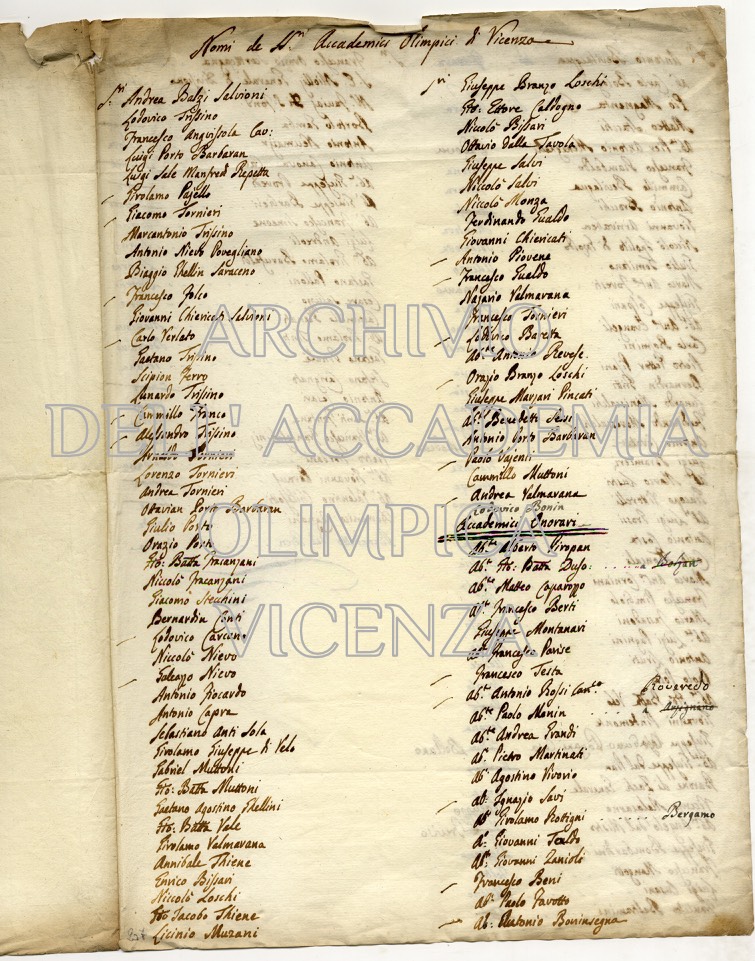 Nomi de Sri Accademici Olimpici di Vicenza
Sri Andrea Balzi Salvioni
Lodovico Trissino
Francesco Anguissola Cav:
Luigi Porto Barbaran
Luigi Sale Manfredi Repetta
Girolamo Pajello
Giacomo Tornieri
Marcantonio Trissino
Antonio Nievo Povegliano
Biaggio Ghellin Saraceno
Francesco Folco
Giovanni Chiericati Salvioni
Carlo Verlato
Gaetano Trissino
Scipion Ferro
Lunardo Trissino
Cammillo Franco
Alessandro Trissino
Arnaldo Tornieri
Lorenzo Tornieri
Andrea Tornieri
Ottavian Porto Barbaran
Giulio Porto
Orazio Porto
Gio: Batta Fracanzani
Niccolò Fracanzani
Giacomo Stecchini
Bernardin Conti
Lodovico Carcano
Niccolò Nievo
Galeazzo Nievo
Antonio Bocardo
Antonio Capra
Sebastiano Anti Sola
Girolamo Giuseppe di Velo
Gabriel Muttoni
Gio: Batta Muttoni
Gaetano Agostino Ghellini
Gio: Batta Vale
Girolamo Valmarana
Annibale Thiene
Enrico Bissari
Niccolò Loschi
Gio Jacobo Thiene
Licinio Muzani
Sri Giuseppe Branzo Loschi
Gio: Ettore Caldogno
Niccolò Bissari
Ottavio dalla Tavola
Giuseppe Salvi
Niccolò Salvi
Niccolò Monza
Ferdinando Gualdo
Giovanni Chiericati
Antonio Piovene
Francesco Gualdo
Nazario Valmarana
Francesco Tornieri
Lodovico Baretta
Abe Antonio Revese
Orazio Branzo Loschi
Giuseppe Marzari Pincati
Abe Benedetti Sessi
Antonio Porto Barbaran
Paolo Vajenti
Cammillo Muttoni
Andrea Valmarana
Lodovico Bonin
Accademici Onorari
Abte Alberto
Abe Gio: Batta Duso: . . . . . a Bolzan
Abte Matteo
Abe Francesco Berti
Giuseppe Montanari
Abe Francesco Parise
Francesco Testa
Roveredo
Abe Antonio Rossi Canco
Abte Paolo Monin . . . . a
Abte Andrea Grandi
Abe Pietro Martinati
Abe Agostino Vivorio
Ab: Ignazio Savi
Abe Girolamo Rottigni . . . . . . Bergamo
Ae Giovanni
Abe Giovanni Zanioli
Francesco Beni
Abe Paolo Favotto
Ab: Antonio Boninsegna
ARCHIVIO
DELL'ACCADEMIA
OLIMPICA
VICENZA